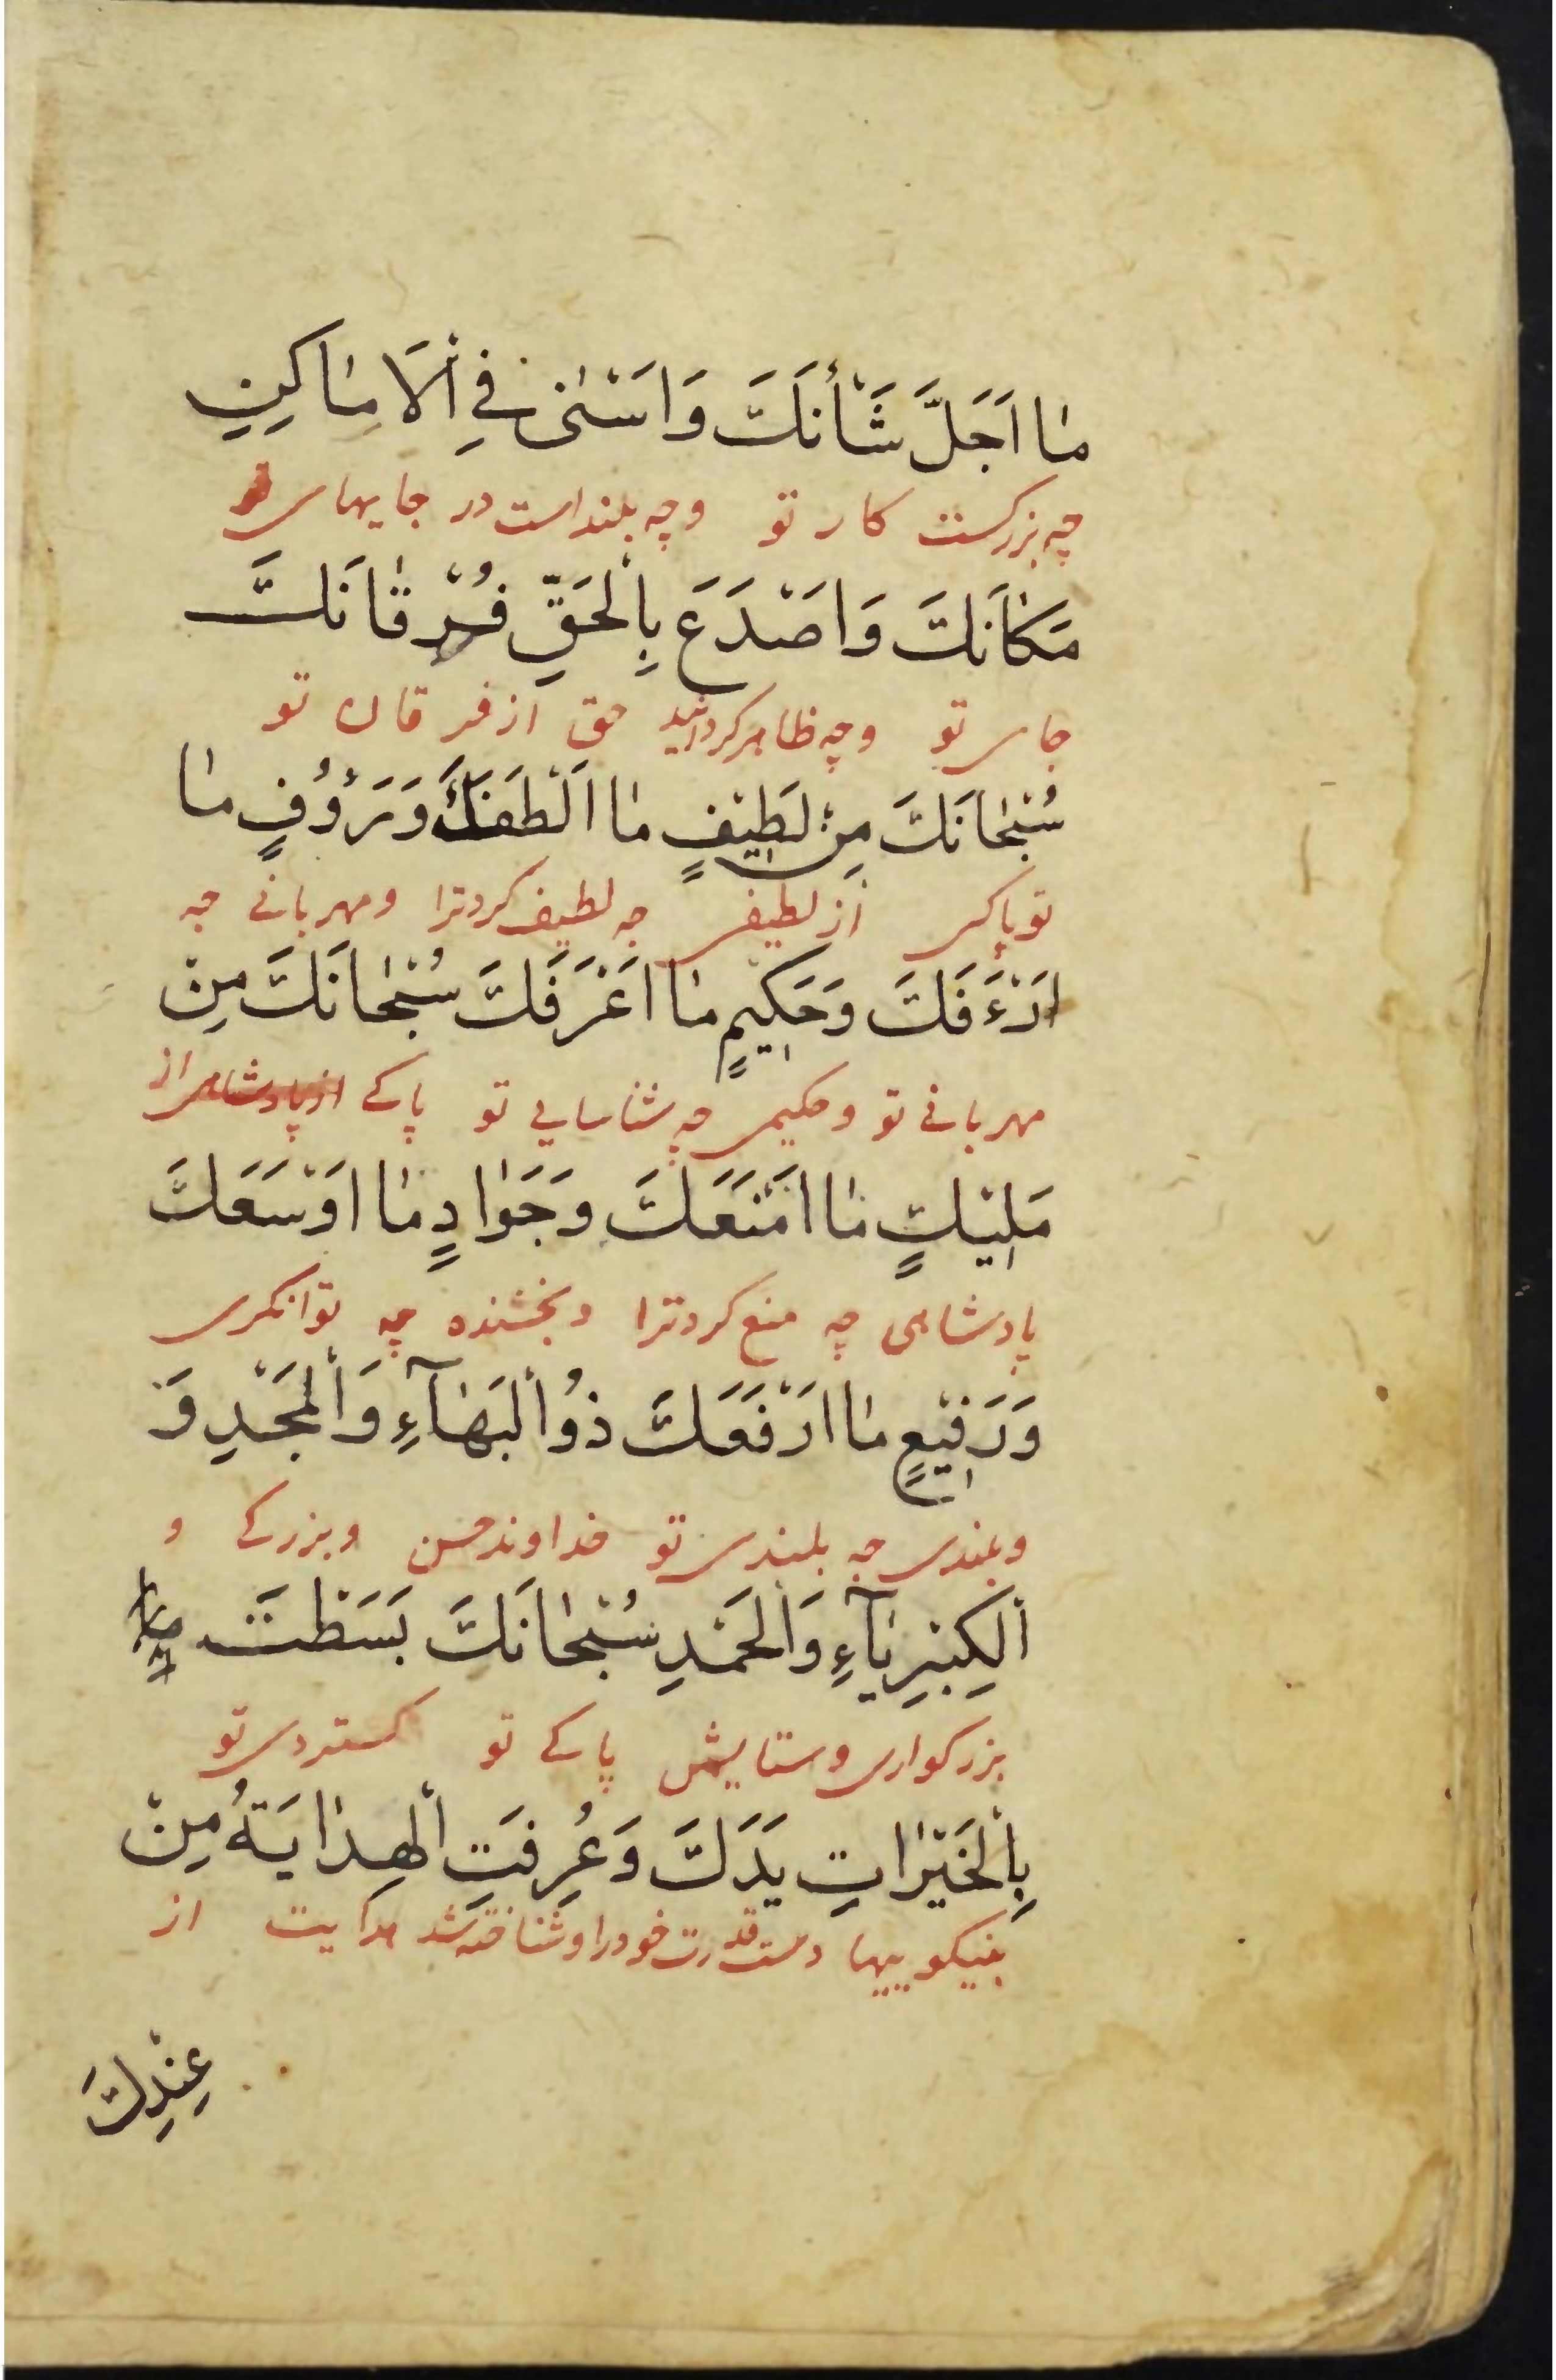 مَا اَجَلَّ شَأْنَكَ وَاَسْنٰى فِي الْاَمَاكِنِ
چه بزركست كار تو وچه بلند است در جايهاى
مَكَانَكَ وَاَصْدَعَ بِالْحَقِّ فُرْقَانَكَ
جاى تو وچه ظاهر كردانيد حق از فرقان تو
سُبْحَانَكَ مِنْ لَطِيْفٍ مَا اَلْطَفَكَ وَرَؤُفٍ مَا
تو پاكى از لطيفى چه لطيف كرد ترا ومهربانے چه
اَرْءَفَكَ وَحَكِيْمٍ مَا اَعْرَفَكَ سُبْحَانَكَ مِنْ
مهربانے تو وحكيمى چه شناسايي تو پاكے از
مَلِيْكٍ مَا اَمْنَعَكَ وَجَوَادٍ مَا اَوْسَعَكَ
پادشاهى چه منع كرد ترا وبخشنده چه توانكرى
وَرَفِيْعٍ مَا اَرْفَعَكَ ذُو الْبَهَآءِ وَالْمَجْدِ وَ
وبلندى چه بلندى تو خداوند حسن وبزركے و
الْكِبْرِيَآءِ وَالْحَمْدِ سُبْحَانَكَ بَسَطْتَ
بزركوارى وستايش پاكے تو كستردى تو
بِالْخَيْرَاتِ يَدَكَ وَعُرِفَتِ الْهِدَايَةُ مِنْ
بنيكوييها دست قدرت خود را وشناخته شد هدايت از
عِنْدِكَ